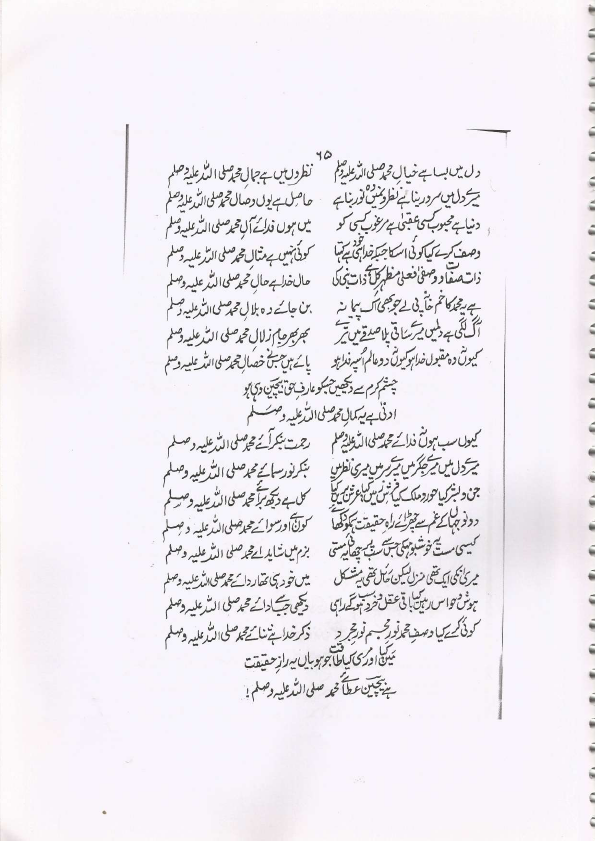 ۶۵
دل میں بسا ہے خیالِ محمد صلی اللہ علیہ وصلم نظروں میں ہے جمالِ محمد صلی اللہ علیہ وصلم
میرے دل میں سرور بنا ہے نظروں میں وہ نور بنا ہے حاصل ہے یوں وصالِ محمد صلی اللہ علیہ وصلم
دنیا ہے محبوب کسی کی عقبیٰ ہے مرغوب کسی کو میں ہوں فدائے آلِ محمد صلی اللہ علیہ وصلم
وصف کرے کیا کوئی اسکا جبکہ خدا خود ہی ہے کہتا کوئی نہیں ہے مثالِ محمد صلی اللہ علیہ وصلم
ذات صفات و وصفی فعلی مظہر کل ہے ذات نبی کی حال خدا ہے حالِ محمد صلی اللہ علیہ وصلم
ہے یہ محمد کا خم خانہ پی لے جو بھی اک پیمانہ بن جائے وہ بلالِ محمد صلی اللہ علیہ وصلم
آگ لگی ہے دل میں میرے ساقی پلا صدقے میں تیرے بھر بھر جامِ زلالِ محمد صلی اللہ علیہ وصلم
کیوں وہ مقبول خدا ہو کیوں دو عالم اُسپہ فدا ہو پائے ہیں جس نے خصالِ محمد صلی اللہ علیہ وصلم
چشم کرم سے دیکھیں جسکو عارفِ حق بیچین وہی ہو
ادنیٰ ہے یہ کمالِ محمد صلی اللہ علیہ وصلم
کیوں سب ہوں فدائے محمد صلی اللہ علیہ وصلم رحمت بنکر آئے محمد صلی اللہ علیہ وصلم
میرے دل میں میرے جگر میں میرے سر میں میری نظر میں بنکر نور سمائے محمد صلی اللہ علیہ وصلم
جن و بشر کیا حور و ملک کیا فرشِ زمیں کیا عرشِ بریں کیا کل ہے دیکھ برائے محمد صلی اللہ علیہ وصلم
دونوں جہاں کے غم سے چھڑائے راہِ حقیقت ہمکو دکھائے کون ہے اور سوائے محمد صلی اللہ علیہ وصلم
کیسی مست یہ خوشبو مہکی جس سے سب پر چھائی مستی بزم میں شاید آئے محمد صلی اللہ علیہ وصلم
میری انکی ایک تھی منزل لیکن حائل تھی یہ مشکل میں خود ہی تھا ردائے محمد صلی اللہ علیہ وصلم
ہوش و حواس رہیں کیا باقی عقل و خرد سب ہو گئے راہی دیکھی جب ادائے محمد صلی اللہ علیہ وصلم
کوئی کرے کیا وصف محمد نور مجسم نور مجرد ذکر خدا ہے ثنائے محمد صلی اللہ علیہ وصلم
میں کیا اور مری کیا طاقت جو ہو بیاں یہ رازِ حقیقت
ہے بیچین عطائے محمد صلی اللہ علیہ وصلم!